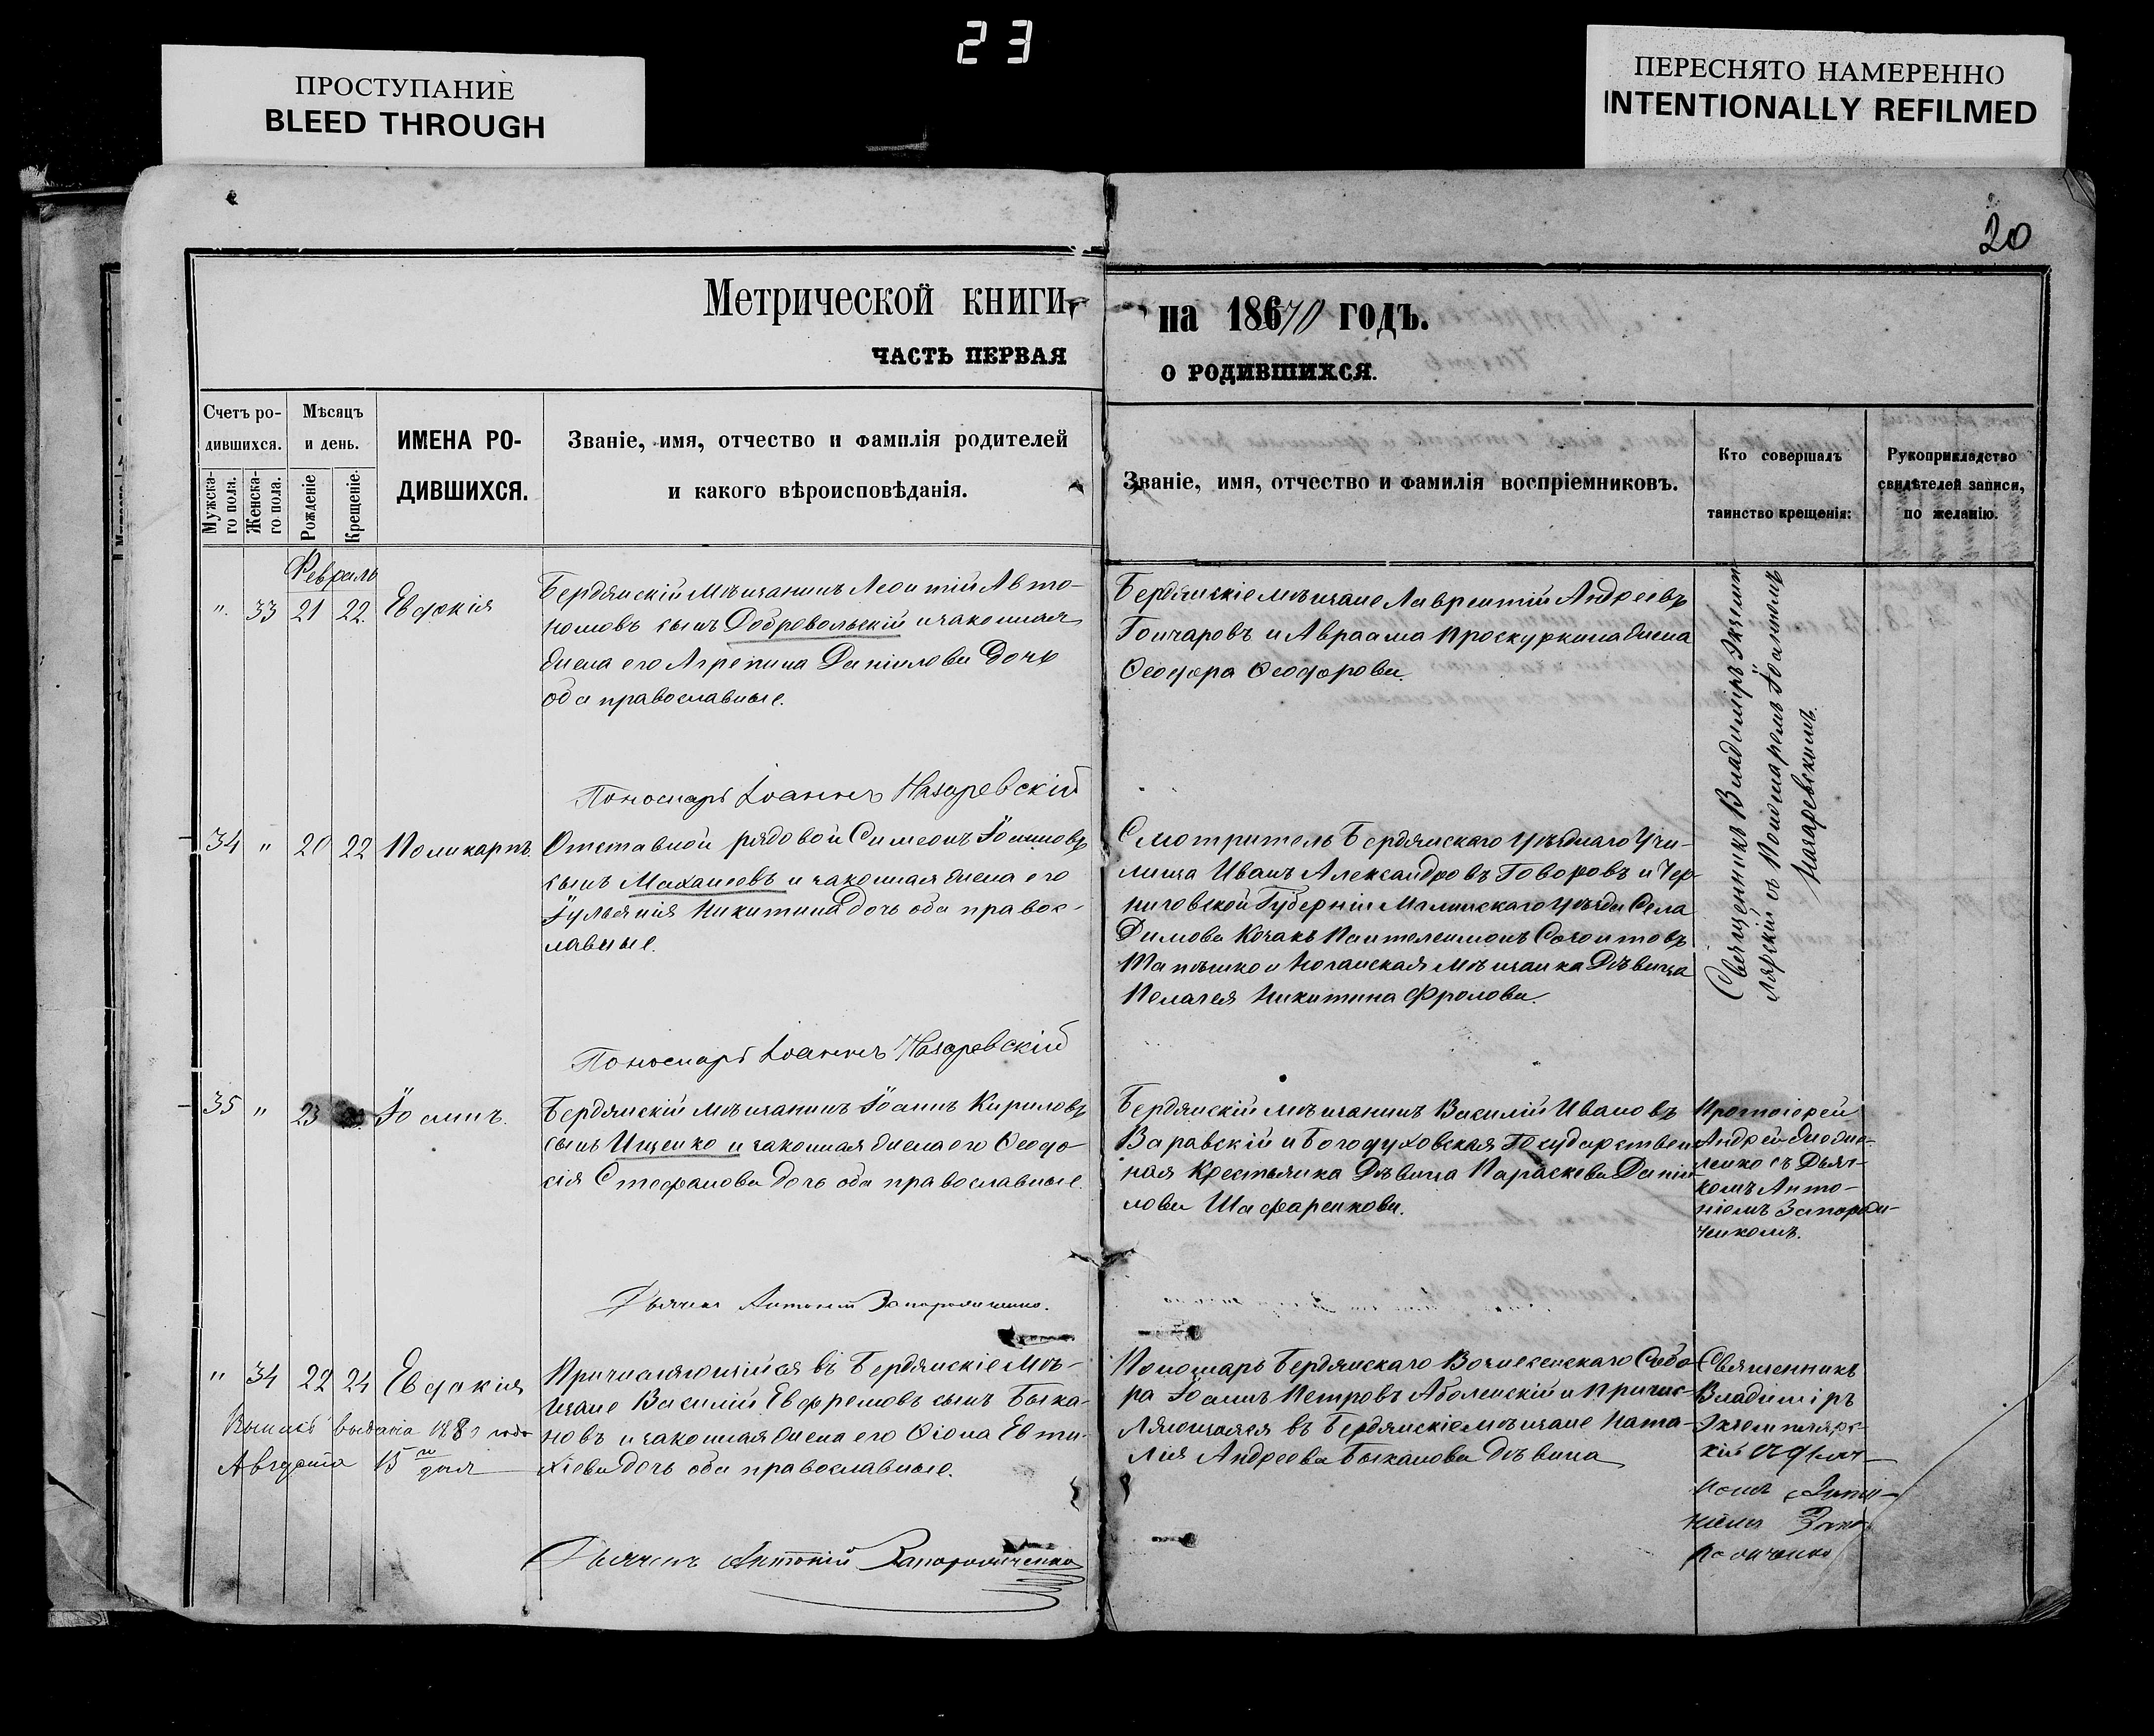 23
ПРОСТУПАНИЕ
BLEED THROUGH
ПЕРЕСНЯТО НАМЕРЕННО
INTENTIONALLY REFILMED
20
Метрической книги
ЧАСТЬ ПЕРВАЯ
на 18670 годъ.
О РОДИВШИХСЯ.
Счетъ ро-
дившихся.
Мужска-
го пола.
Женска-
го пола.
Мѣсяцъ
и день.
Рожденіе
Крещеніе.
ИМЕНА РО-
ДИВШИХСЯ.
Званіе, имя, отчество и фамилія родителей
и какого вѣроисповѣданія.
Званіе, имя, отчество и фамилія воспріемниковъ.
Кто совершалъ
таинство крещенія:
Рукоприкладство
свидѣтелей записи,
по желанію.
Февраль
" 33 21 22. Евдокія
Бердянскій мѣщанинъ Леонтій Авто-
номовъ сынъ Добровольскій и законная
жена его Агрепина Даніилова дочь
оба православные.
Бердянскіе мѣщане Лаврентій Андреевъ
Гончаровъ и Авраама Проскуркина жена
Ѳеодора Ѳеодорова.
Священникъ Владиміръ Экземп-
лярскій съ Пономаремъ Іоанномъ
Назаревскимъ.
Пономарь Іоаннъ Назаревскій
34 " 20 22 Поликарпъ.
Отставной рядовой Симеонъ Іоанновъ
сынъ и законная жена его
Іульянія Никитина дочь оба правос-
лавные.
Смотритель Бердянскаго Уѣзднаго Учи-
лища Иванъ Александровъ Говоровъ и Чер-
ниговской Губерніи Мглинскаго уѣзда Села
Димова Козакъ Пантелеимонъ
и Ногайская мѣщанка Дѣвица
Пелагея Никитина Фролова.
Пономарь Іоаннъ Назаревскій
35 " 23 Іоаннъ.
Бердянскій мѣщанинъ Іоаннъ Кириловъ
сынъ Ищенко и законная жена его Ѳеодо-
сія Стефанова дочь оба православные.
Бердянскій мѣщанинъ Василій Ивановъ
Варавскій и Богодуховская Государствен-
ная Крестьянка Дѣвица Параскева Даніи-
лова Шафаренкова.
Протоіерей
Андрей
съ Дьяч-
комъ Анто-
ніемъ Запорож-
ченкомъ.
Дьячекъ Антоній Запорожченко.
" 34 22 24 Евдокія
Выпись выдана 188 года
Августа 15 дня
Причисляющійся въ Бердянскіе мѣ-
щане Василій Евфремовъ сынъ Быка-
новъ и законная жена его Ѳіона Евти-
хіева дочь оба православные.
Пономарь Бердянскаго Вознесенскаго Собо-
ра Іоаннъ Петровъ Аболенскій и Причис-
ляющаяся въ Бердянскіе мѣщане Ната-
лія Андреева Быканова дѣвица
Священникъ
Владиміръ
Экземплярс-
кій съ дьяч-
комъ Анто-
ніемъ Запо-
рожченко
Дьячекъ Антоній Запорожченко